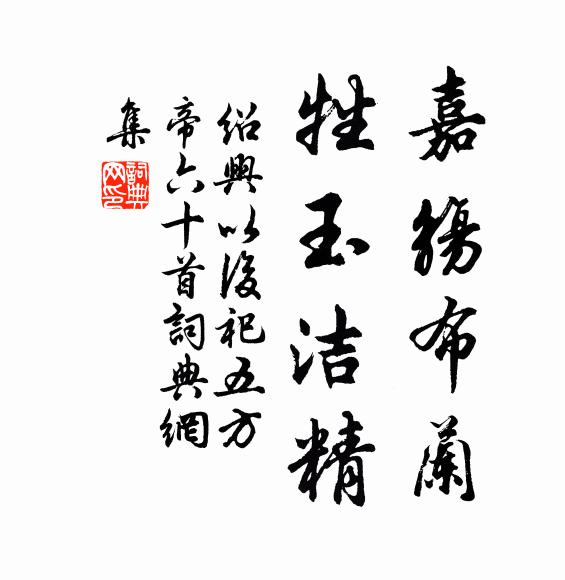 嘉觴布蘭
牲玉洁精
紹興以後祀五方
帝六十首詞典網
集
詞典网印